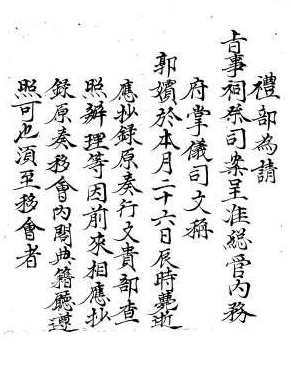 禮部為請
旨事祠祭司案呈准緫管內務
府掌儀司文稱
郭嬪於本月二十六日辰時薨逝
應抄録原奏行文貴部查
照辦理等因前來相應抄
録原奏移會內閣典籍廳遵
照可也須至移會者